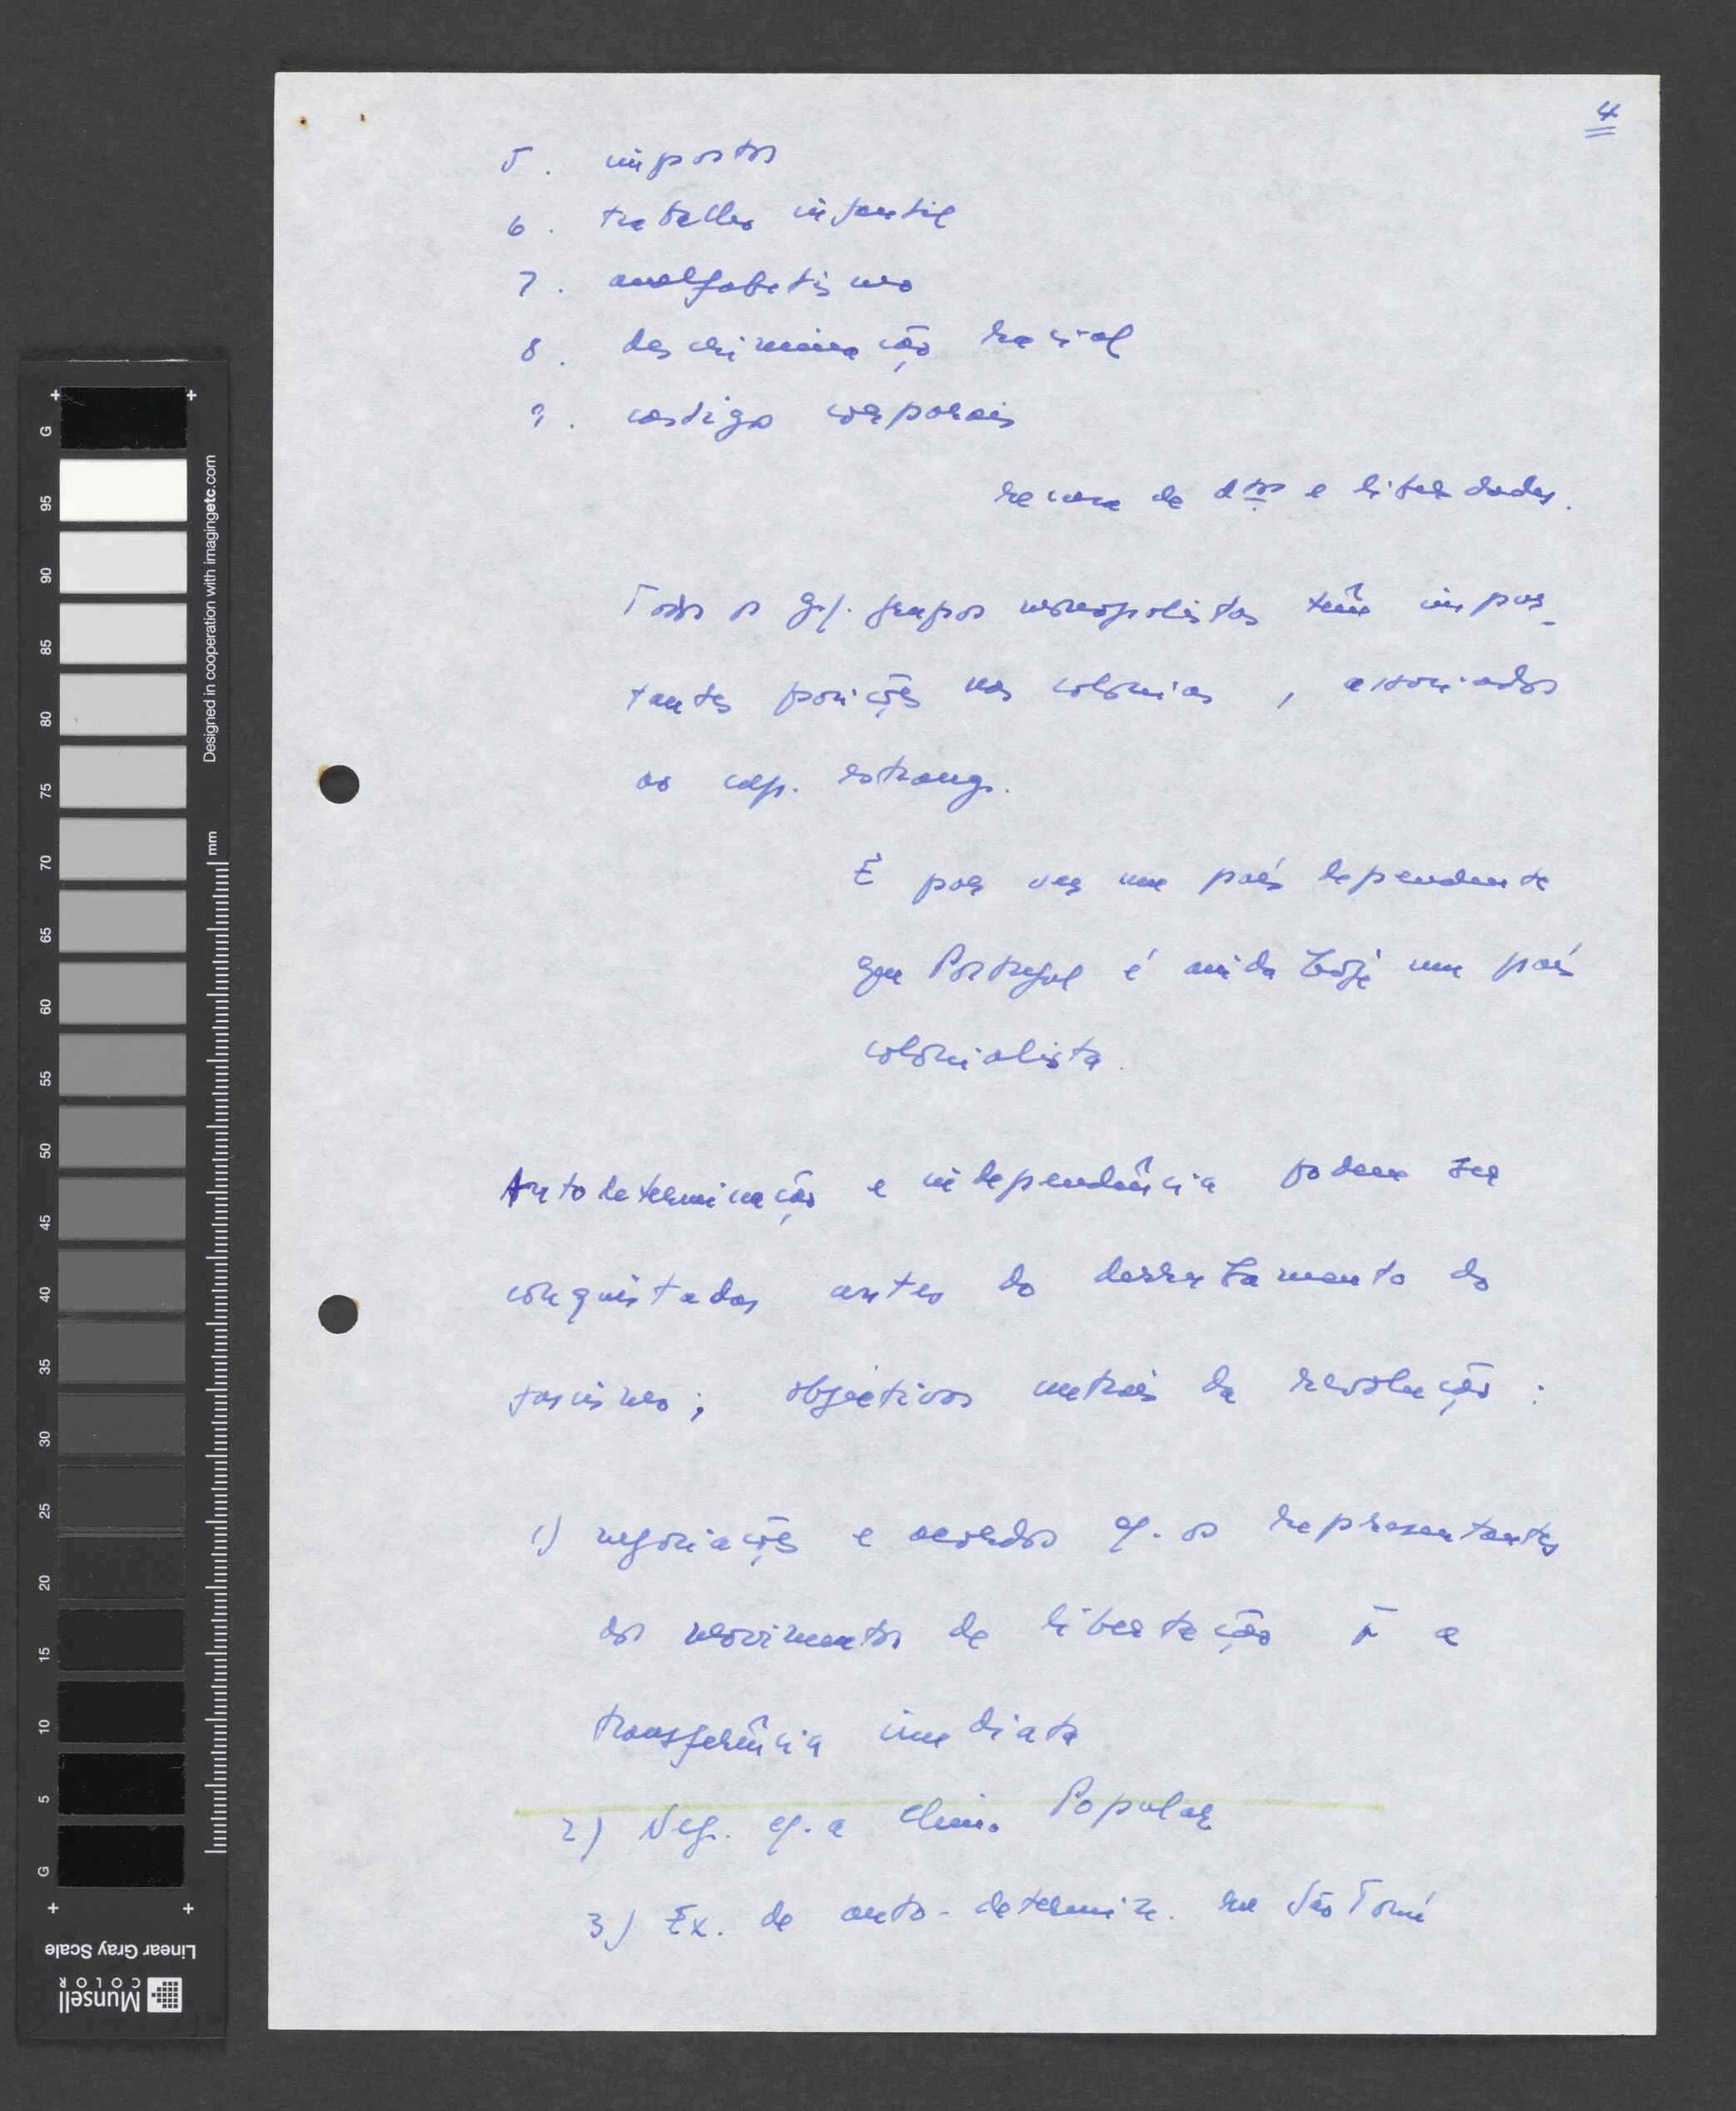 4
5. impostos
6. trabalho infantil
7. analfabetismo
8. descriminação racial
9. castigos corporais
recusa de dtos e liberdades.
Todos os gr. grupos monopolistas têm impor-
tantes posições nas colonias, associados
ao cap. estrang.
É por ser um país dependente
que Portugal é ainda hoje um país
colonialista.
Autodeterminação e independência podem ser
conquistadas antes do derrubamento do
fascismo; objectivos centrais da revolução:
1) negociações e acordos c. os representantes
dos movimentos de libertação p a
transferência imediata
2) Neg. c. a China Popular
3) Ex. de auto-determin. em São Tomé
G
95
90
85
80
75
70
65
60
55
50
45
40
35
30
25
20
15
10
5
G
Designed in cooperation with imagingetc.com
mm
Linear Gray Scale
Munsell
COLOR